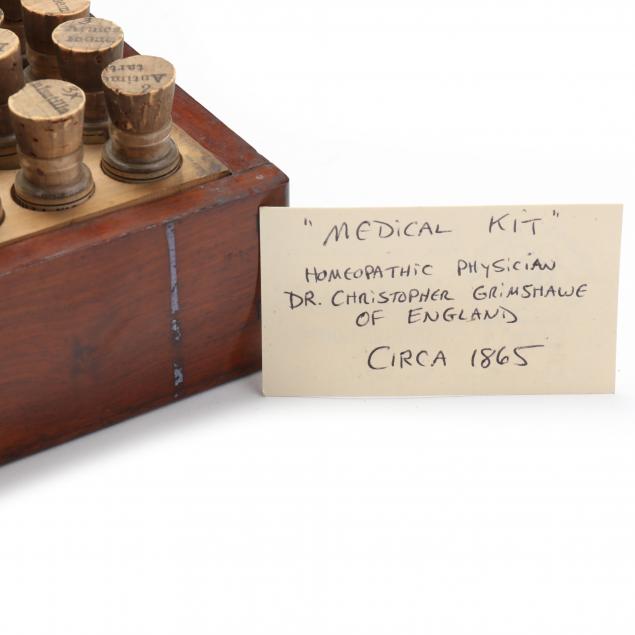 "MEDICAL KIT"
HOMEOPATHIC PHYSICIAN
DR. CHRISTOPHER GRIMSHAWE
OF ENGLAND
CIRCA 1865
3X